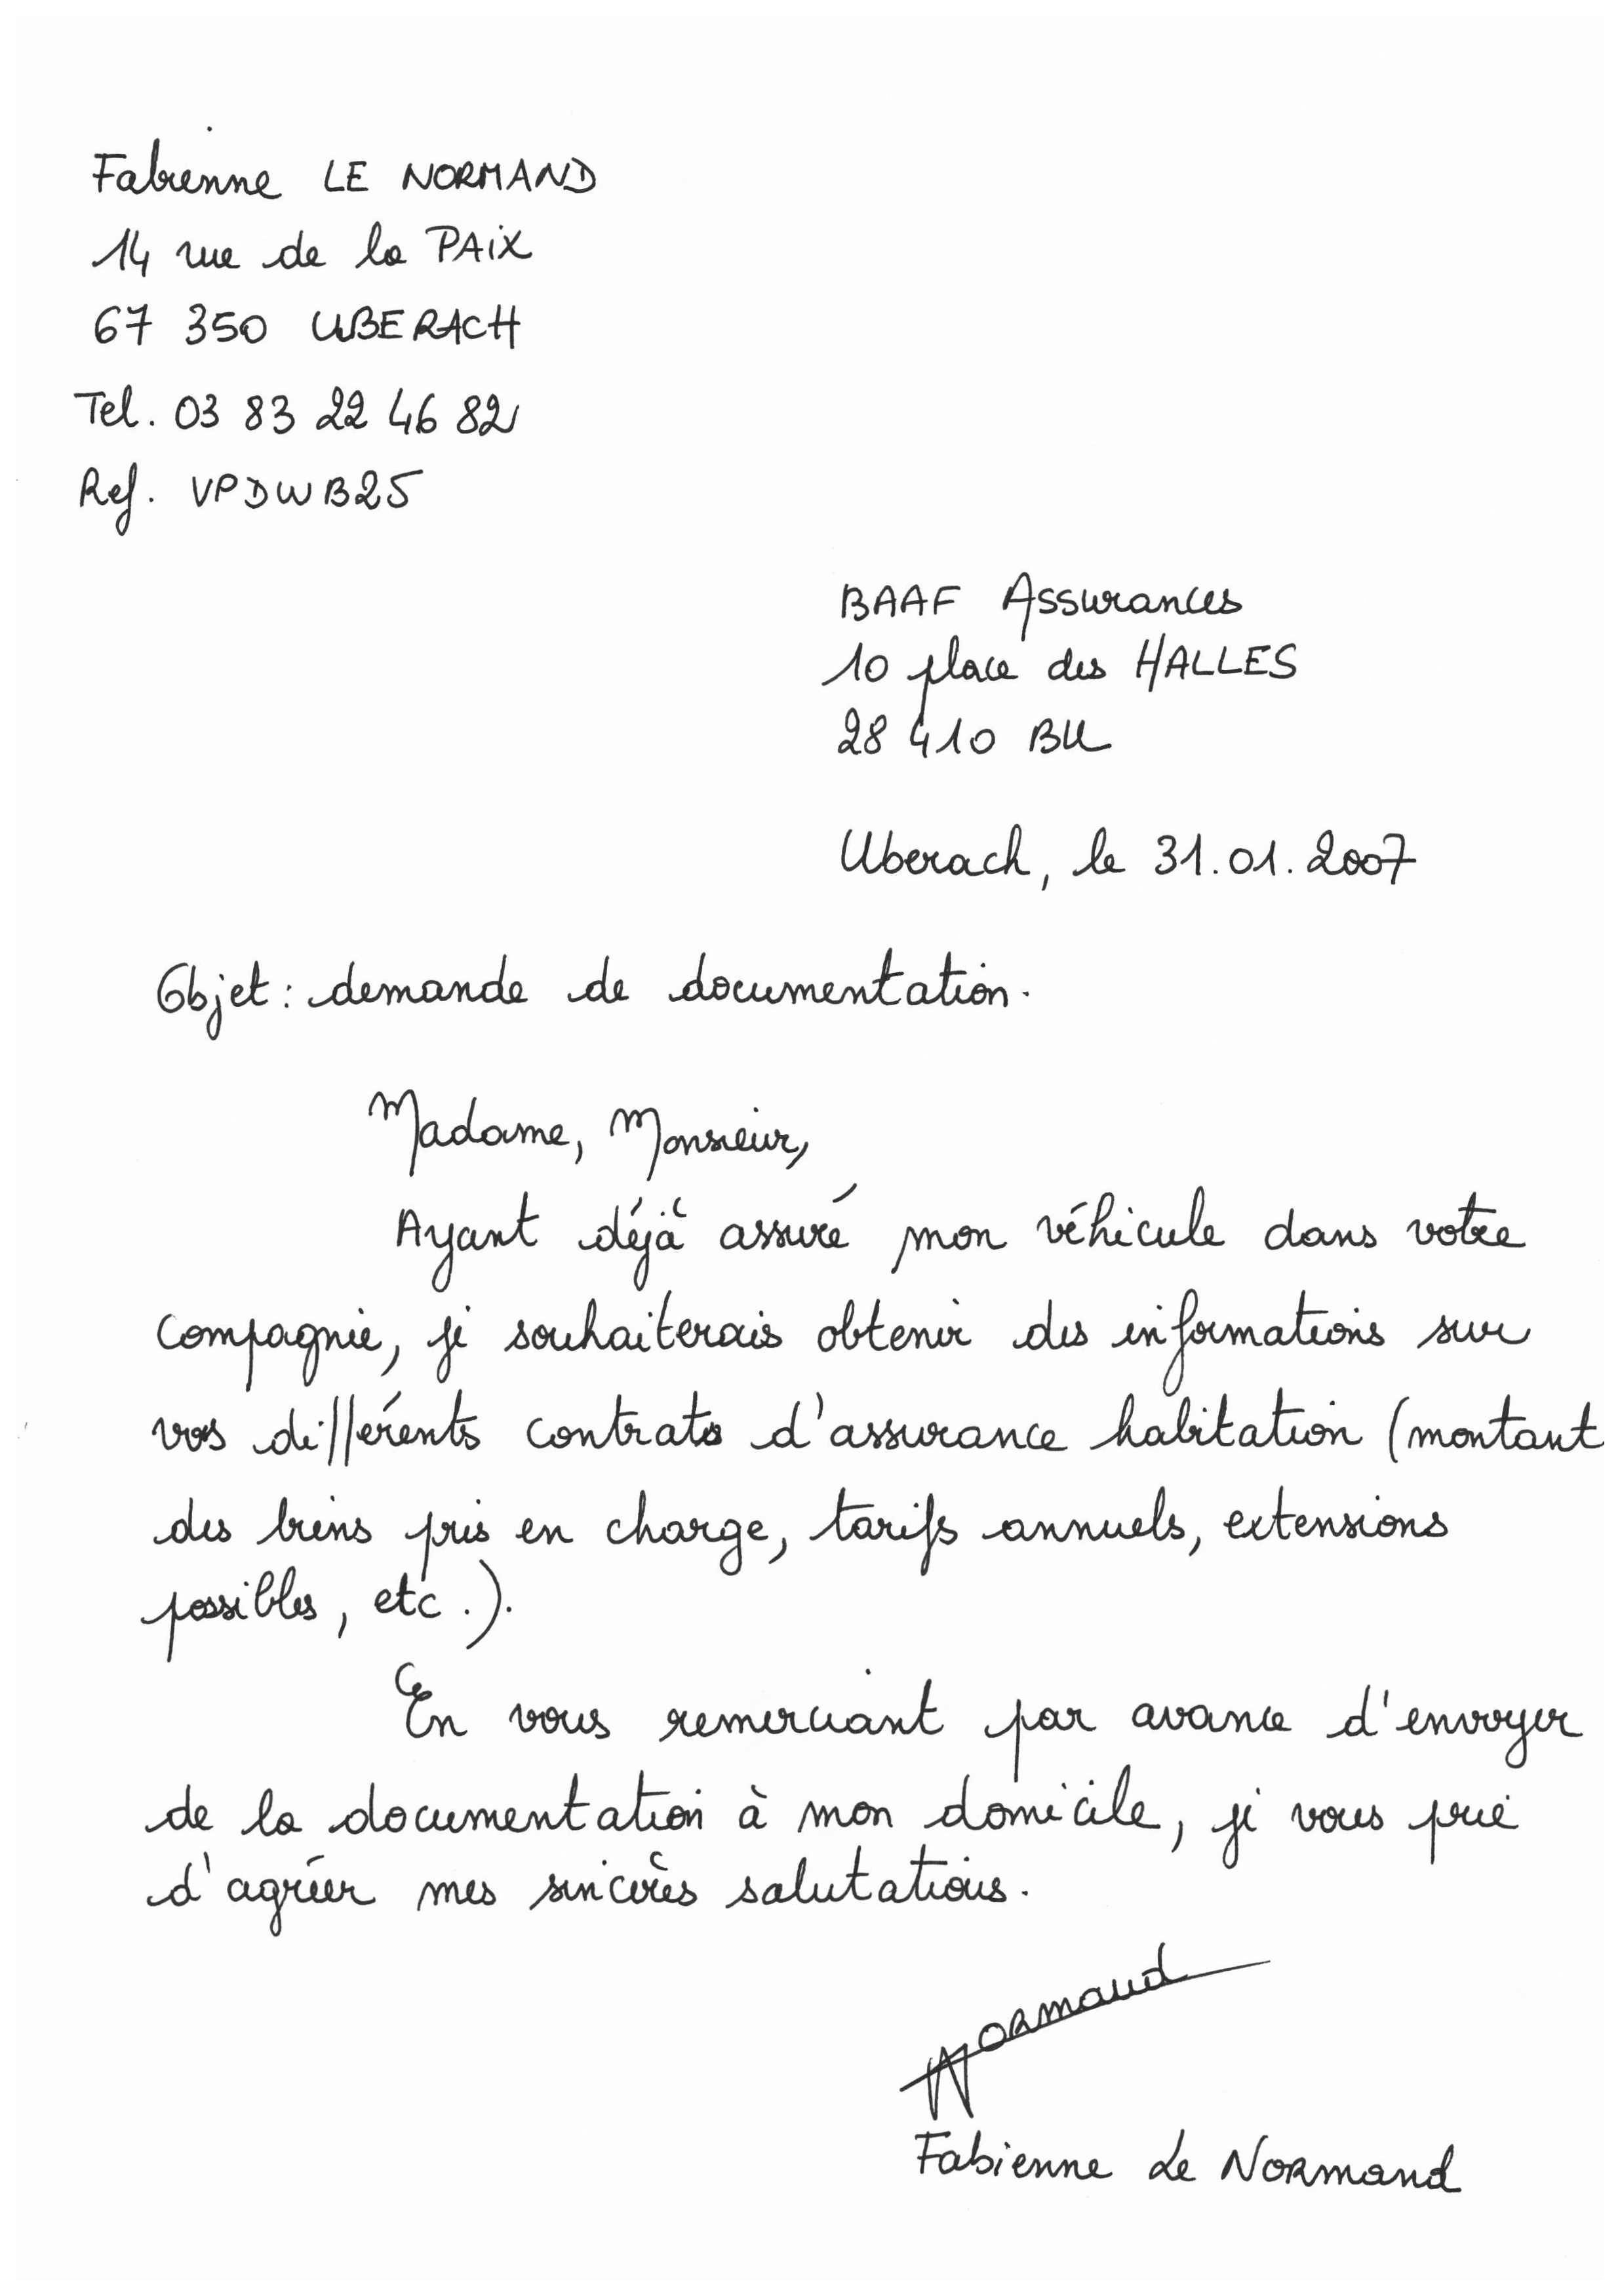 Fabienne LE NORMAND
14 rue de la PAiX
67 350 UBERACH
Tel. 03 83 22 46 82
Ref. VPDWB25
BAAF Assurances
10 place des HALLES
28 410 BU
Uberach, le 31.01.2007
Objet : demande de documentation.
Madame, Monsieur,
Ayant déjà assuré mon véhicule dans votre
compagnie, je souhaiterais obtenir des informations sur
vos différents contrats d'assurance habitation (montant
des biens pris en charge, tarifs annuels, extensions
possibles, etc.).
En vous remerciant par avance d'envoyer
de la documentation à mon domicile, je vous prie
d'agréer mes sincères salutations.
Normand
Fabienne Le Normand